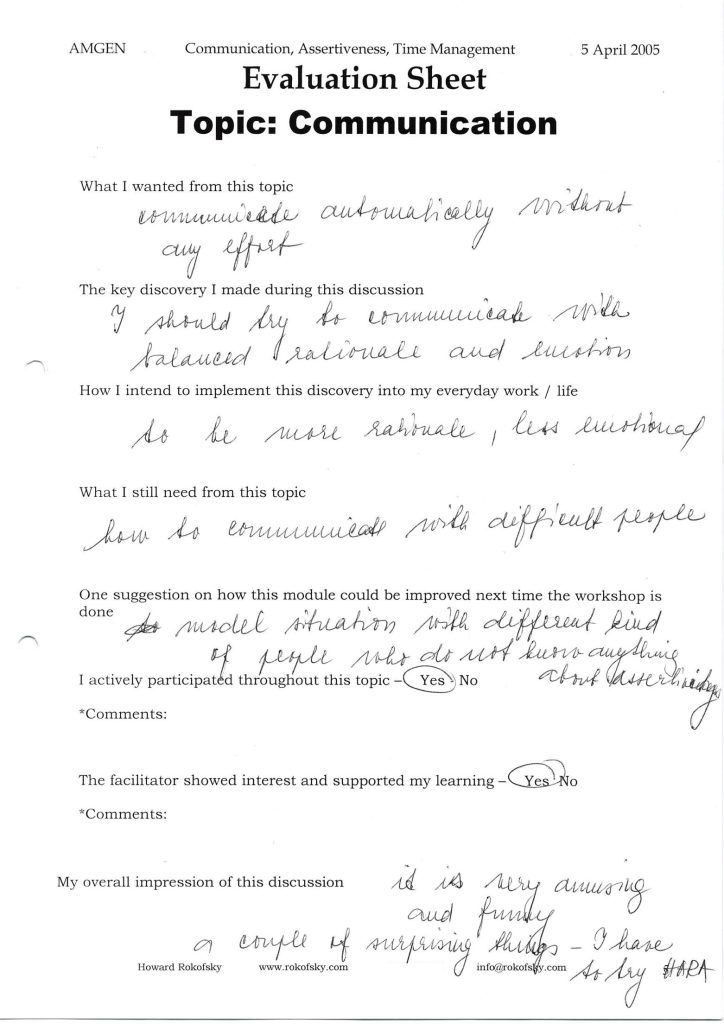 AMGEN Communication, Assertiveness, Time Management 5 April 2005
Evaluation Sheet
Topic: Communication
What I wanted from this topic
communicate automatically without
any effort
The key discovery I made during this discussion
I should try to communicate with
balanced rationale and emotion
How I intend to implement this discovery into my everyday work / life
to be more rationale, less emotional
What I still need from this topic
how to communicate with difficult people
One suggestion on how this module could be improved next time the workshop is
done model situation with different kind
of people who do not know anything
about
I actively participated throughout this topic – Yes No
*Comments:
The facilitator showed interest and supported my learning – Yes No
*Comments:
My overall impression of this discussion it is very amusing
and funny
a couple of surprising things – I have
to try HARA
Howard Rokofsky www.rokofsky.com info@rokofsky.com